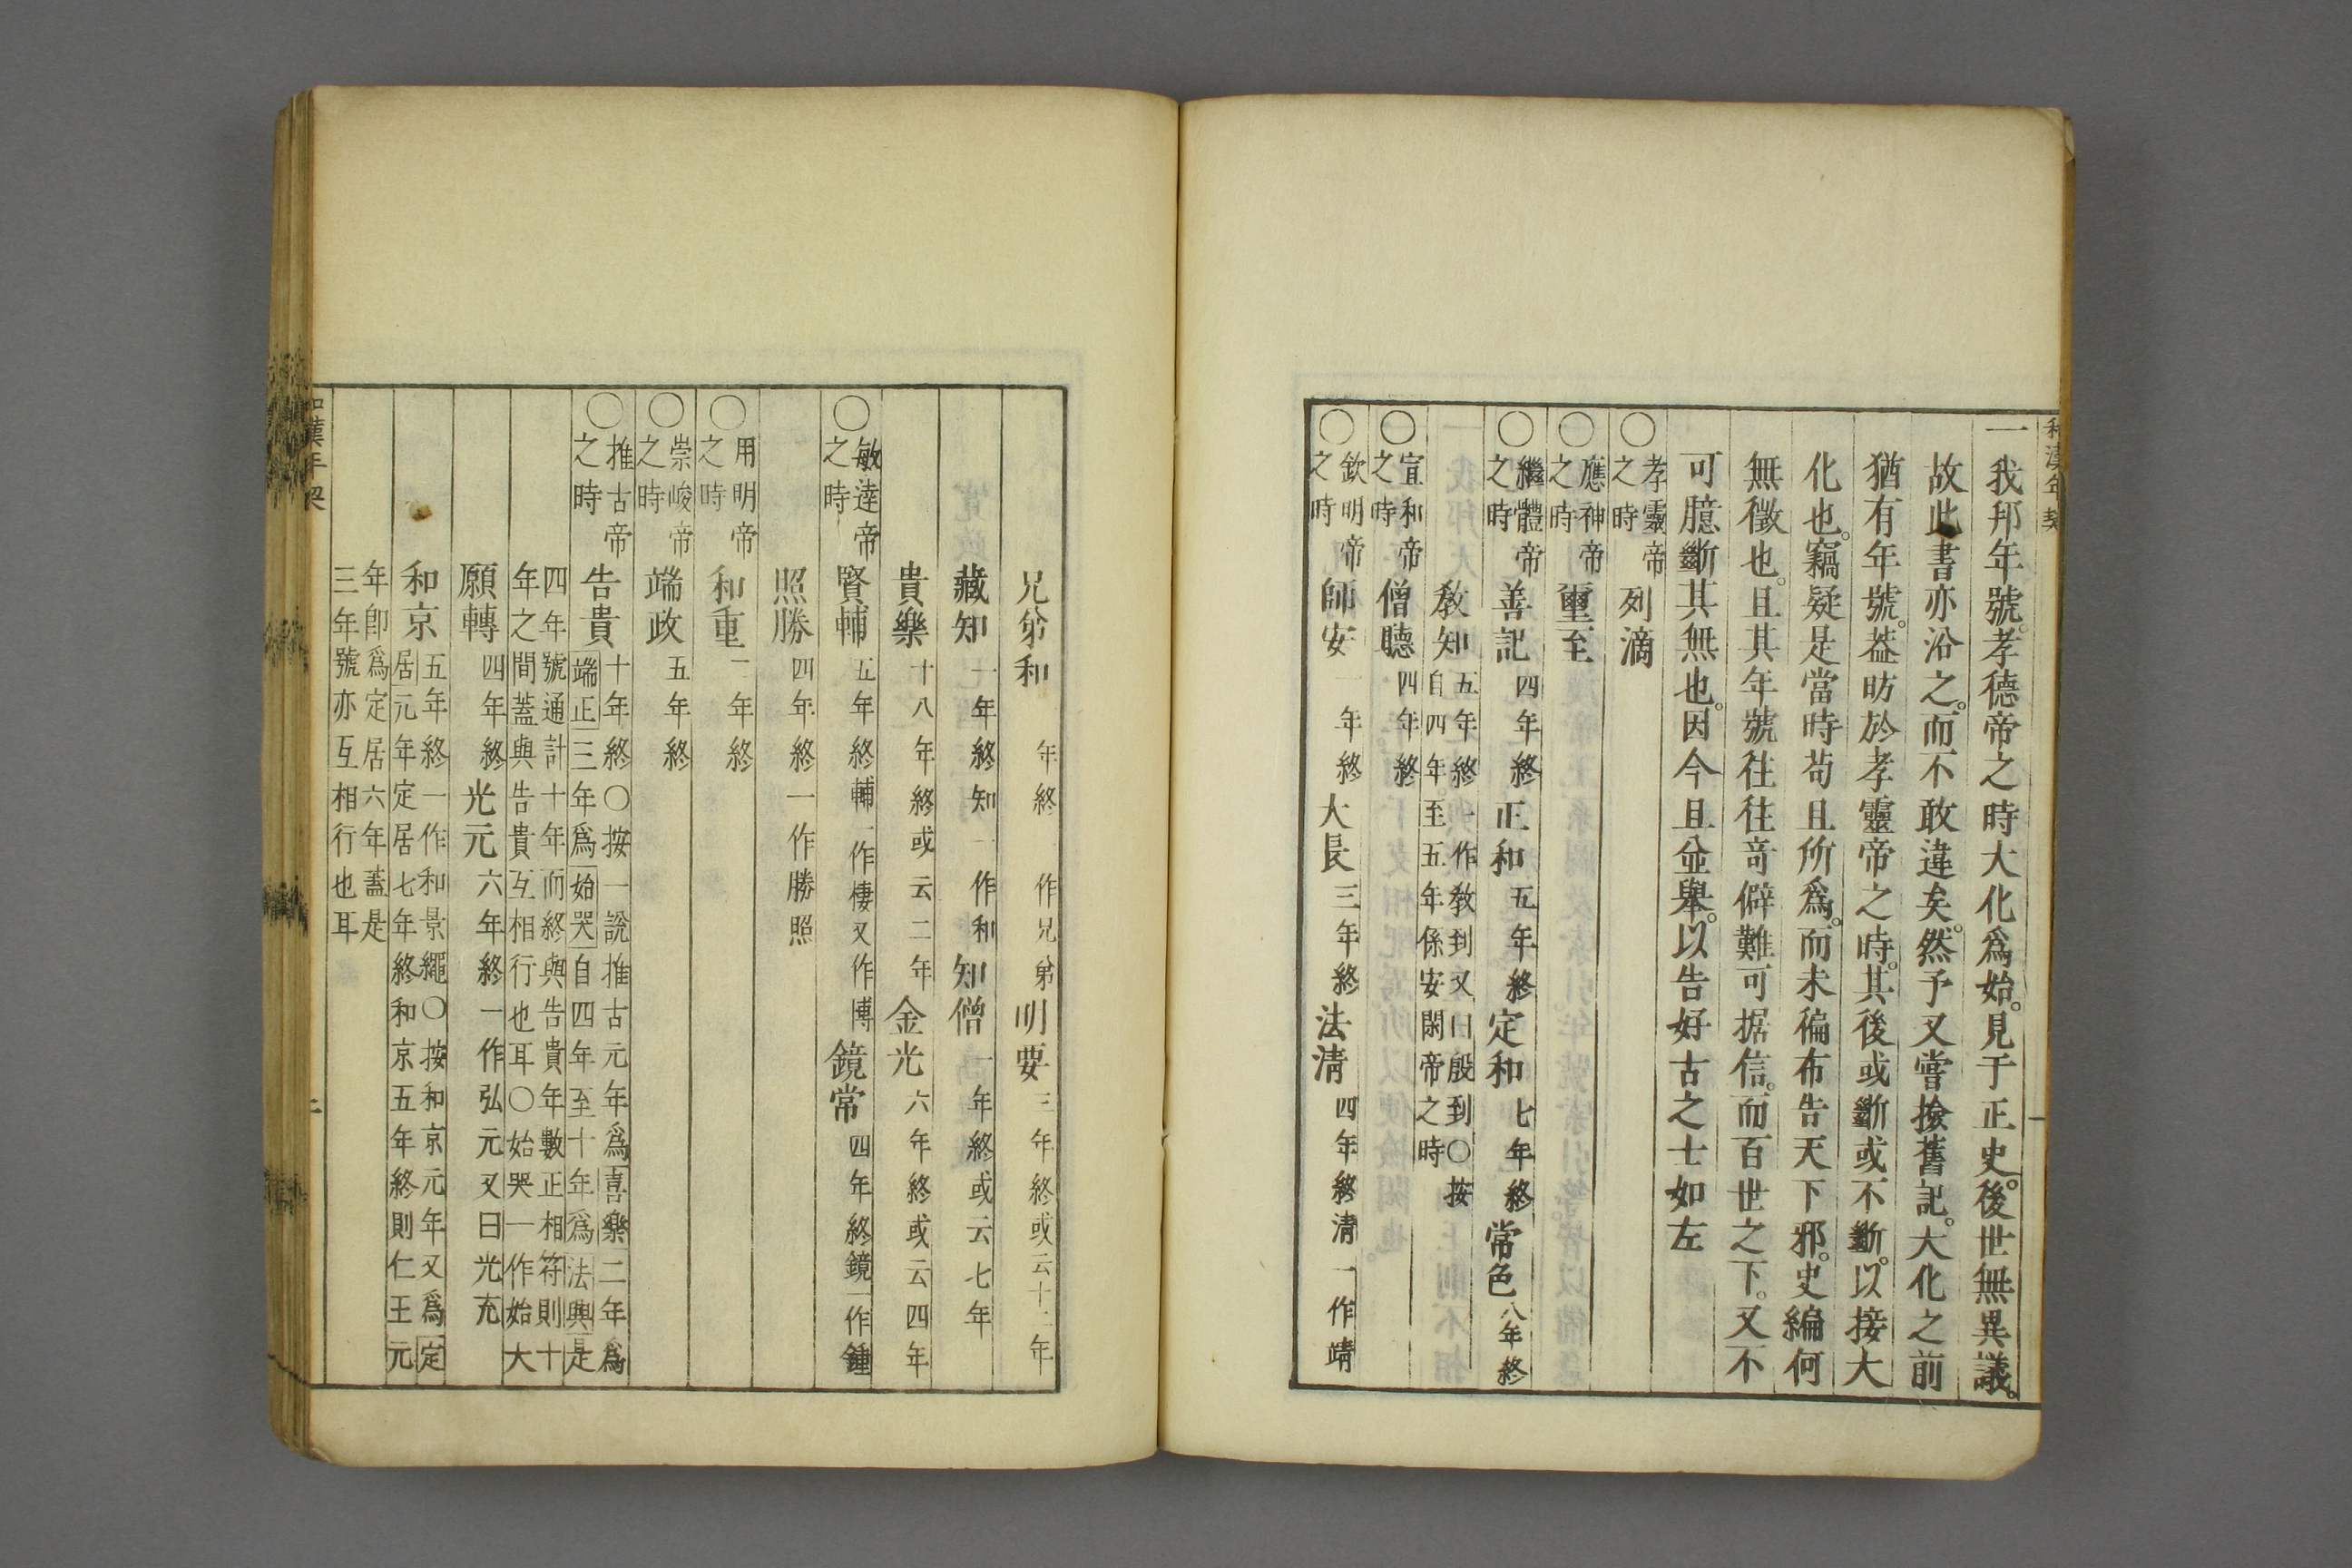 和漢年契
一我邦年號。孝德帝之時大化爲始。見于正史。後世無異議。
故此書亦沿之。而不敢違矣。然予又嘗撿舊記。大化之前
猶有年號。葢昉於孝靈帝之時。其後或斷或不斷。以接大
化也。竊疑是當時苟且所爲。而未徧布告天下邪。史編何
無徵也。且其年號往往奇僻難可据信。而百世之下。又不
可臆斷其無也。因今且並舉。以告好古之士如左
〇孝靈帝之時 列滴
〇應神帝之時 璽至
〇繼體帝之時 善記四年終 正和五年終 定和七年終 常色八年終
敎知五年終一作敎到又曰殷到〇按自四年至五年係安閑帝之時
〇宣和帝之時 僧聽四年終
〇欽明帝之時 師安一年終 大長三年終 法淸四年終淸一作靖
兄弟和一年終一作兄弟 明要三年終或云十二年
藏知一年終知一作和 知僧一年終或云七年
貴樂十八年終或云二年 金光六年終或云四年
〇敏達帝之時 賢輔五年終輔一作棲又作博 鏡常四年終鏡一作鍾
照勝四年終一作勝照
〇用明帝之時 和重二年終
〇崇峻帝之時 端政五年終
〇推古帝之時 告貴十年終〇按一說推古元年爲喜樂二年爲端正三年爲始哭自四年至十年爲法興是
四年號通計十年而終與告貴年數正相符則十年之間蓋與告貴互相行也耳〇始哭一作始大
願轉四年終 光元六年終一作弘元又曰光充
和京五年終一作和景繩〇按和京元年又爲定居元年定居七年終和京五年終則仁王元
年卽爲定居六年蓋是三年號亦互相行也耳
和漢年契